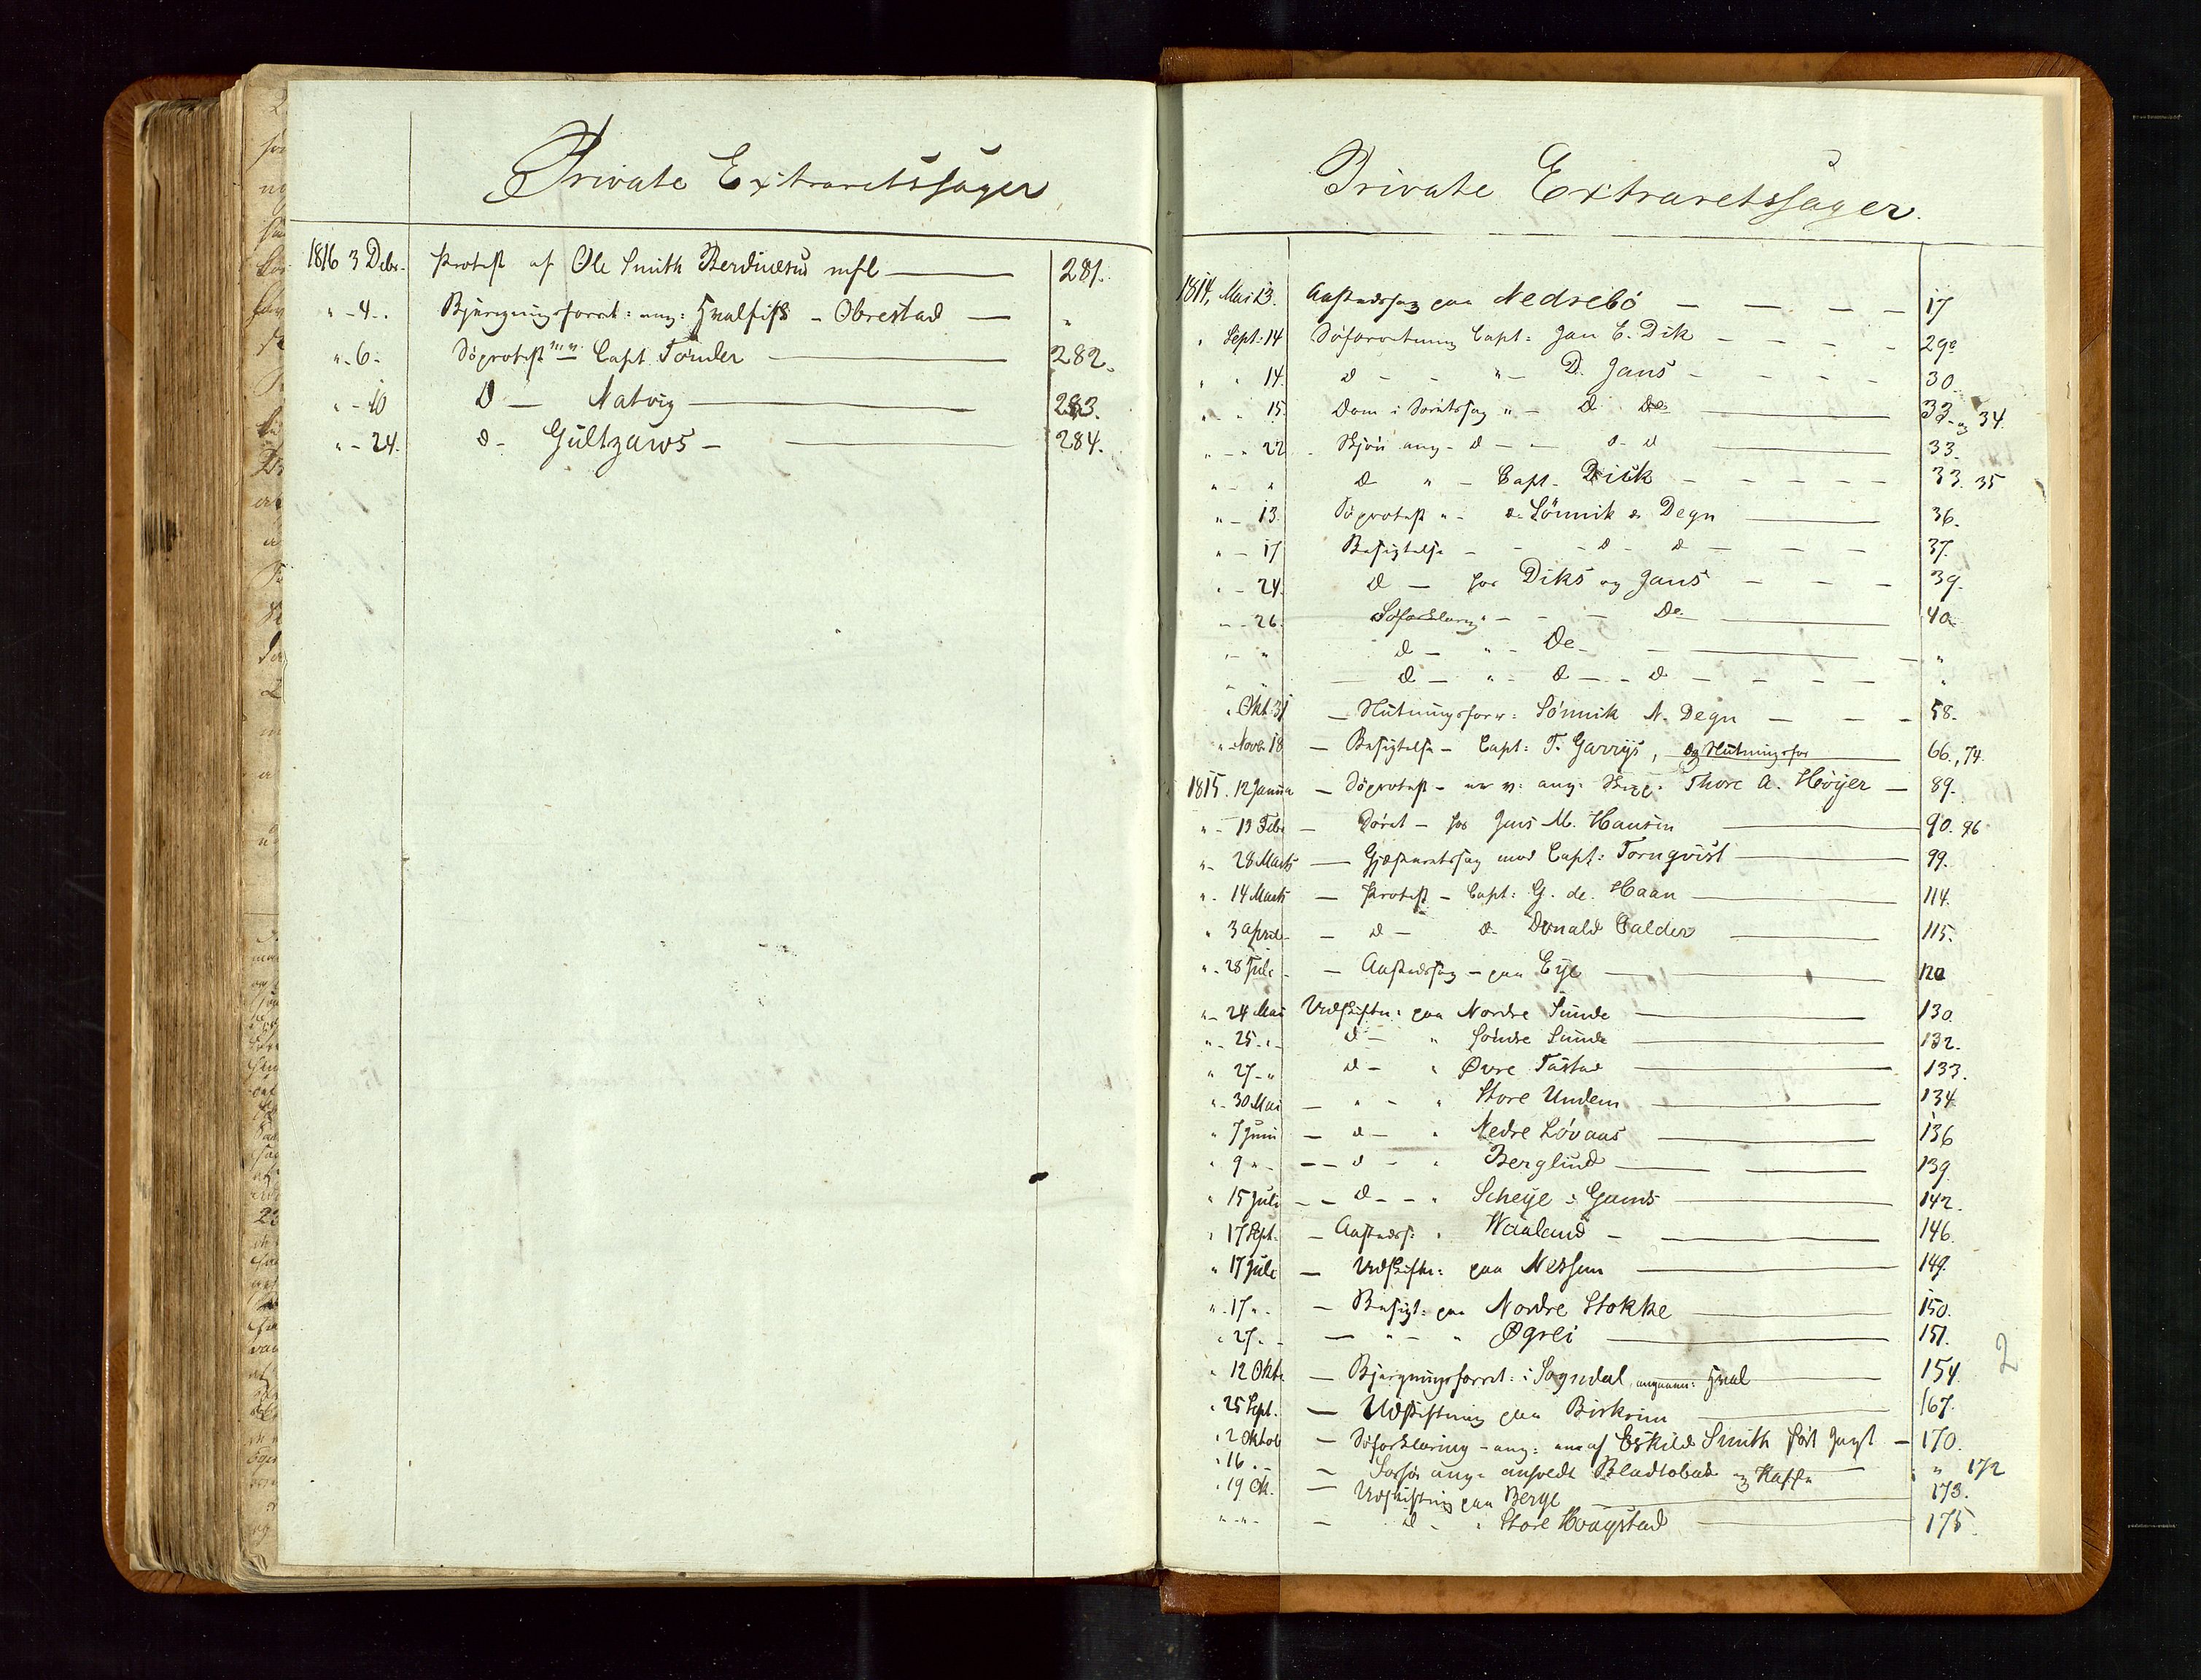 Private Extraretssager
1816 3 Debr. Protest af Ole Smith Berdinesus mfl — 281.
" - 4 - . Bjergningsforret: ang: Hvalfisk - Obrestad — "
" - 6 - Söprotest m. v. Capt. Tönder — 282.
" - 10 D — Natvig — 283.
" - 24. d - Gültzaws — 284.
Private Extraretssager.
1814, Mai 13. Aastedssag paa Nedrebö — 17
" Sept: 14 Söforretning Capt: Jan C. Dik — 29
" " 14. d - - " - D. Jans — 30.
" - " 15. Dom i Söretssag " - D De — 33 - og 34.
" - " 22 Skjön ang - d - - d - d — 33.
" - " d " - Capt - Dick — 33. 35
" - 13. Söprotest " - d - Lönnik d Degn — 36.
" - 17 Besigtelse - - - d - d — 37.
" - 24. d - for Diks og Jans — 39.
" - 26. Söforklaring " - - De — 40.
" - " d - " - De — "
" " d - " - d - - d — "
" Okt: 31 — Slutningsforr: Lönnik N. Degn — 58.
" - Novb 18 — Besigtelse - Capt: T. Garrijs, og Slutningsfor — 66., 74.
1815. 12 Janua — Söprotest - m v: ang: Skipp: Thore A. Höyer — 89.
" - 13 Feb — Söret - for Jens M. Hansen — 90. 96
" - 28 Marts — Gjæsteretssag mod Capt: Tornqvist — 99.
" . 14 Marts — Protest - Capt: G. de. Haan — 114.
" 3 april — d - d - Donald Calder — 115.
" - 28 Juli — Aastedssag - paa Eye — 120
" - 24 Mai Udskiftn: paa Nordre Sunde — 130.
" - 25 - " - d - " Söndre Sunde — 132.
" 27 - " d - " Øvre Tastad — 133.
" - 30 Mai — " - " Store Undem — 134
" 7 Juni — d - " Nedre Lövaas — 136
" 9 " - — d - " Berglund — 139.
" 15 Juli — d - - " Scheye : Gams — 142.
" 17 Sept. — Aastedss: " Waaland — 146.
" 17 Juli — Udskiftn: paa Nessen — 149.
" . 17 " . — Besigt: paa Nordre Stokke — 150.
" 27. - — " - " Øgrei — 151.
" 12 Okt — Bjergningsforret: i Sogndal, angaaen: Hval — 154.
" 25 Sept. — Udskiftning paa Birkrim — 167.
" 2 Oktob — Söforklaring - ang: en af Eskild Smith fört Jagt — 170.
" 16 . - — ang: Bladtobak og Kaffe — " 172
" 19 Ok. — Udskiftning paa Berge — 173.
" - " - — d - " Store Hvagstad — 175.
2